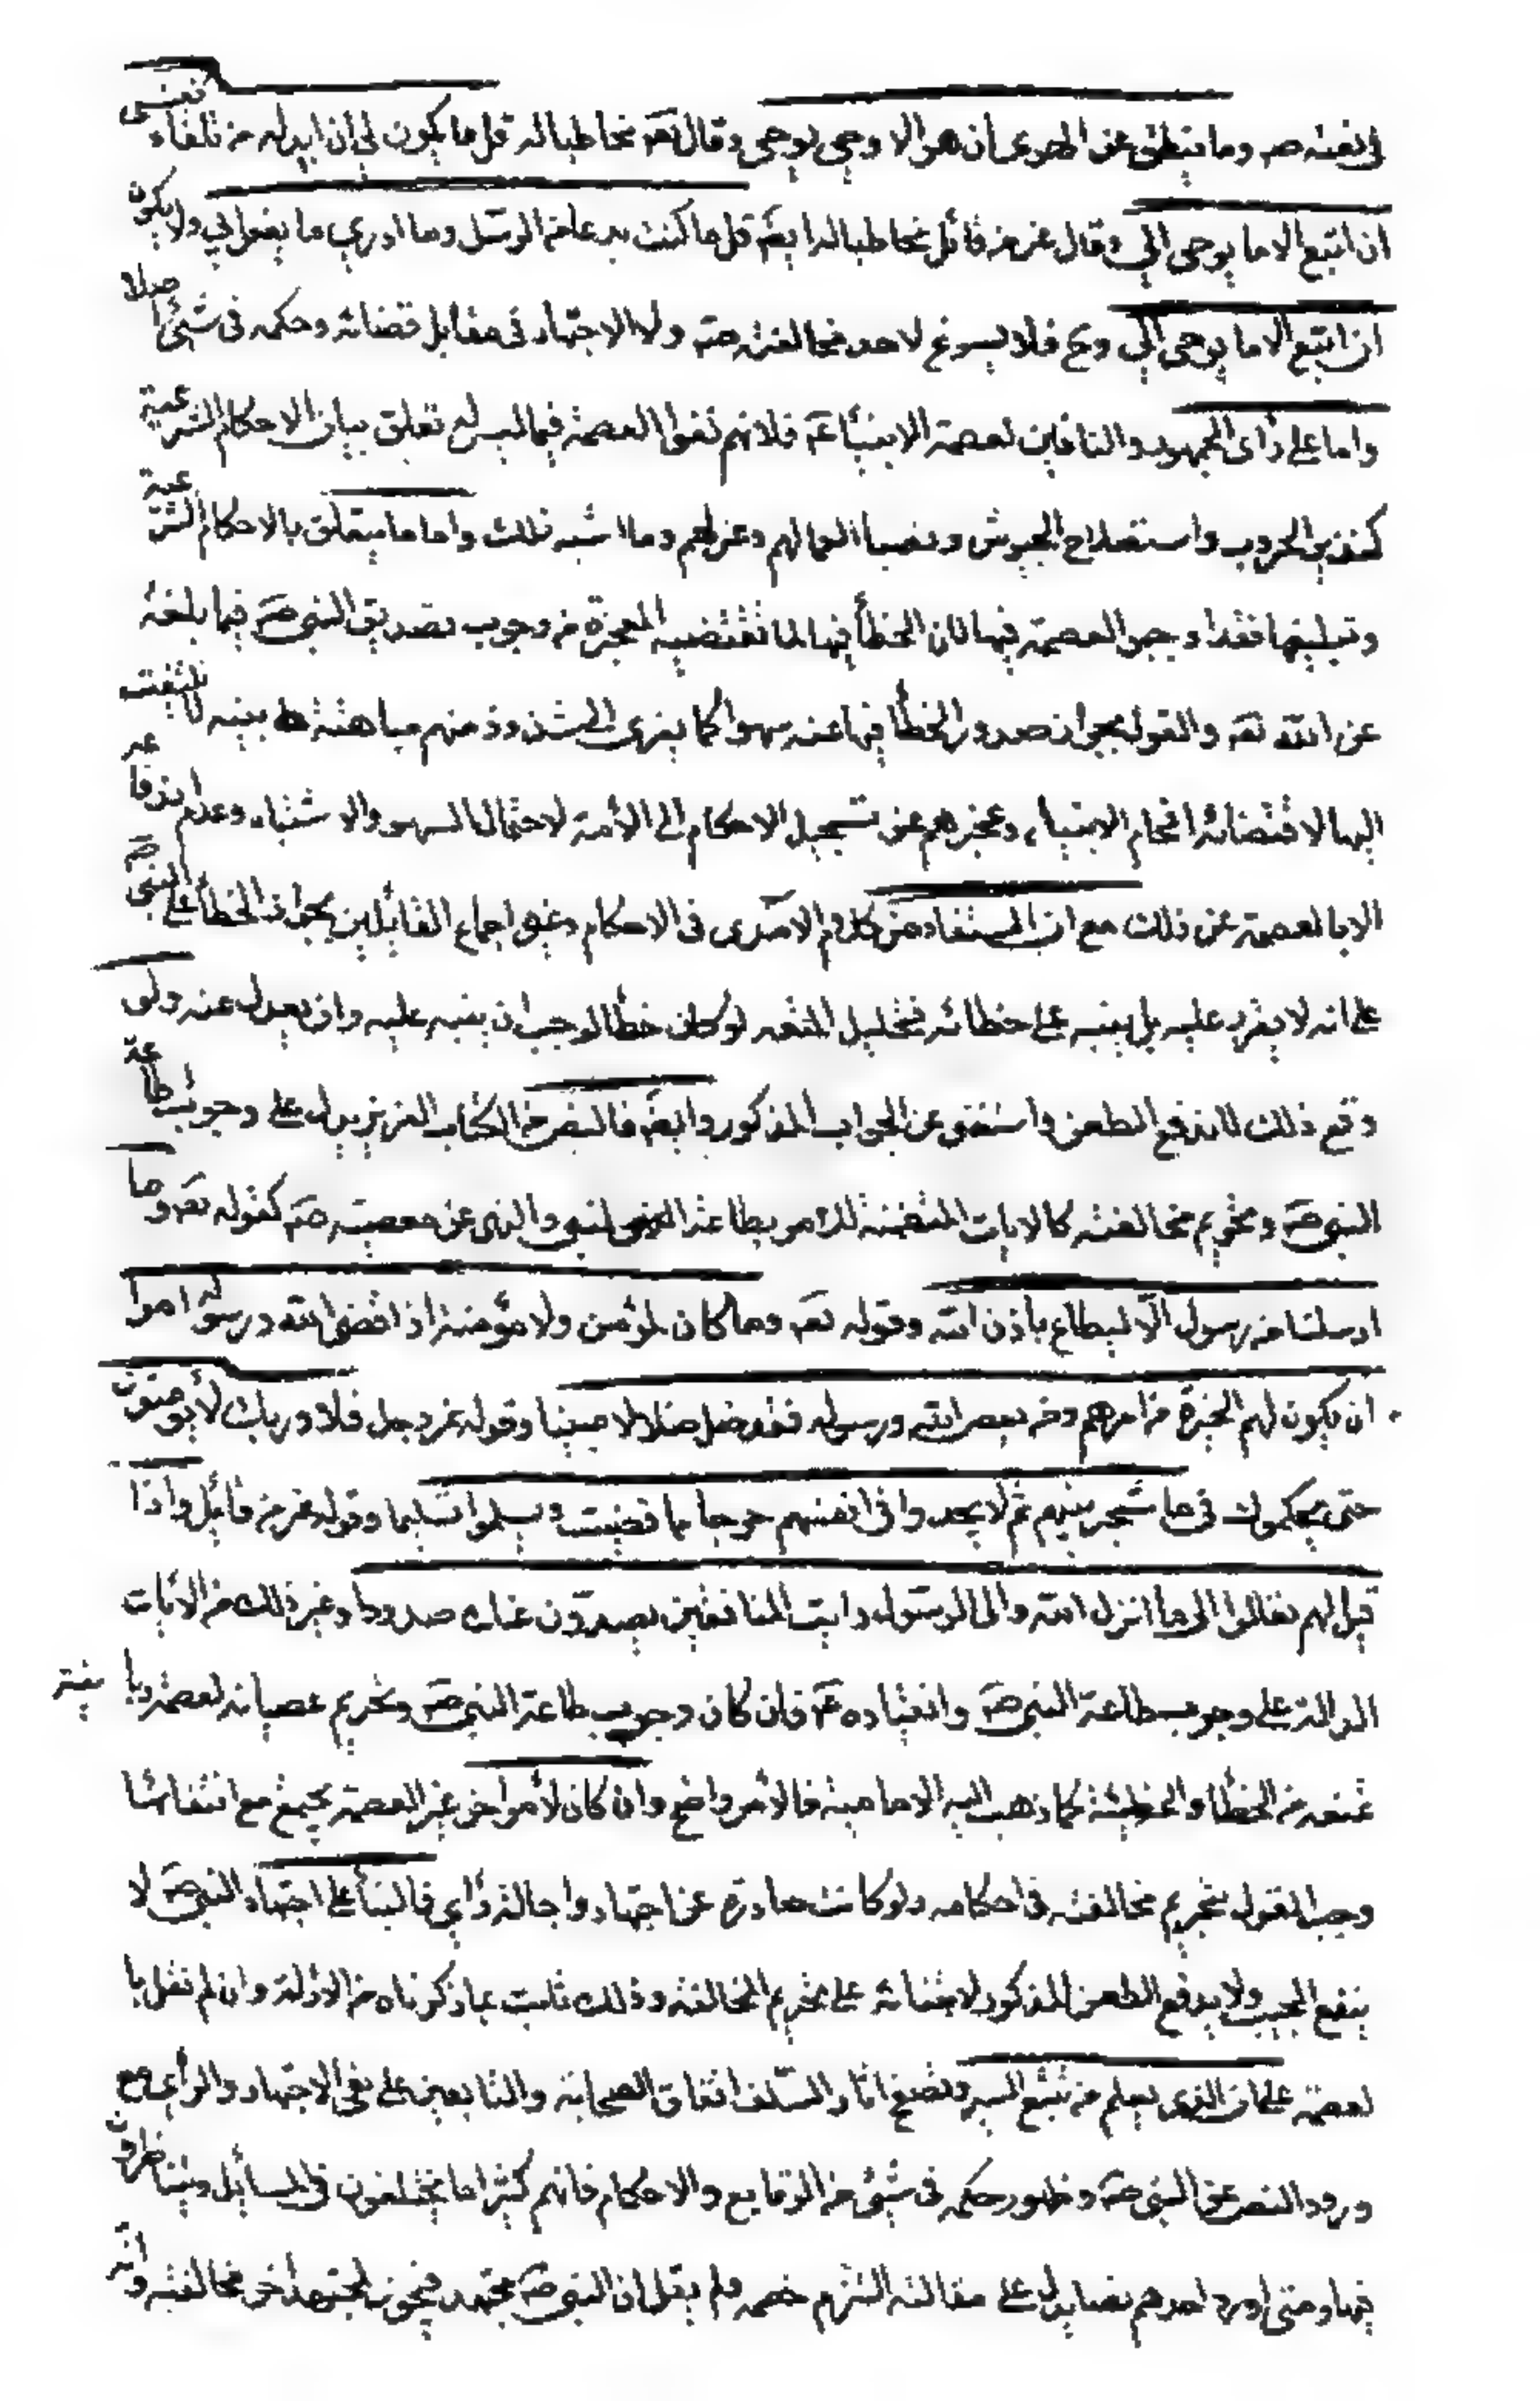 في نعته صه وما ينطق عن الهوى ان هو الا وحي يوحى وقال تعه مخاطبا له قل ما يكون لي ان ابدله من تلقاء نفسي
ان اتبع الا ما يوحى الي وقال عز من قائل مخاطبا له ايضا قل ما كنت بدعا من الرسل وما ادري ما يفعل بي ولا بكم
ان اتبع الا ما يوحى الي وح فلا يسوغ لاحد مخالفته صه ولا الاجتهاد في مقابل قضائه وحكمه في شيئ اصلا
واما على رأى الجمهور والنافين لعصمة الانبيئاء عه فلانهم نفوا العصمة فيما ليس له تعلق ببيان الاحكام الشرعية
كتدبير الحروب واستصلاح الجيوش ونصب العمالهم وعزلهم وما اشبه ذلك واما ما يتعلق بالاحكام الشرعية
وتبليغها فقد اوجبوا العصمة فيها لان الخطأ فيها لما تقتضيه المعجزة من وجوب تصديق النبي صه فيما بلغه
عن الله تعه والقول بجواز صدور الخطأ فيها عنه سهوا كما يعزى الى شذوذ منهم مباهتة بينه لا يلتفت
اليها لاقتضائه افحام الانبياء وعجزهم عن تسجيل الاحكام الى الأمة لاحتمال السهو والاشتباه وعدم اندفاعه
الا بالعصمة عن ذلك مع ان المستفاد من كلام الآمدى في الاحكام وغيره اجماع القائلين بجواز الخطأ على النبي صه
على انه لا يقر عليه بل ينبه على خطائه فتحليل المتعه لو كان خطأ لوجب ان ينبه عليه وان يعدل عنه ولو
وقع ذلك لاندفع الطعن واستغنى عن الجواب المذكور وايضا فالنص من الكتاب العزيز يدل على وجوب طاعة
النبي صه وتحريم مخالفته كالايات المتضمنة للامر بطاعة النبي والنهى عن معصيته صه كقوله تعه وما
ارسلنا من رسول الا ليطاع باذن الله وقوله تعه وما كان لمؤمن ولا مؤمنة اذا قضى الله ورسوله امرا
ان يكون لهم الخيرة من امرهم ومن يعص الله ورسوله فقد ضل ضلالا مبينا وقوله عز وجل فلا وربك لا يؤمنون
حتى يحكموك في ما شجر بينهم ثم لا يجدوا في انفسهم حرجا مما قضيت ويسلموا تسليما وقوله عز من قائل واذا
قيل لهم تعالوا الى ما انزل الله والى الرسول رايت المنافقين يصدون عنك صدودا وغير ذلك من الآيات
الدالة على وجوب طاعة النبي صه وانقياده عه فان كان وجوب طاعة النبي صه وتحريم عصيانه لعصمة ربانية
تمنعه من الخطأ والخطيئة كما ذهب اليه الامامية فالأمر واضح وان كان لأمر اخر غير العصمة يجتمع مع انتفائها
وجب القول بتحريم مخالفته في احكامه ولو كانت صادرة عن اجتهاد واجالة رأي فالبناء على اجتهاد النبي صه لا
ينفع المجيب ولا يدفع الطعن المذكور لابتنائه على تحريم المخالفة وذلك ثابت بما ذكرناه من الادلة وان لم نقل با
لعصمة على ان الذي يعلم من تتبع السير وتصفح اثار السلف اتفاق الصحابة والتابعين على نفي الاجتهاد والرأي مع
ورود النص عن النبي صه وظهور حكمه في شيئ من الوقايع والاحكام فانهم كثيرا ما يختلفون في المسائل ويتناظرون
فيها ومتى اورد احدهم نصا يدل على مقالته التزم خصمه ولم يقل ان النبي صه مجتهد فيجوز لمجتهد اخر مخالفته وانه